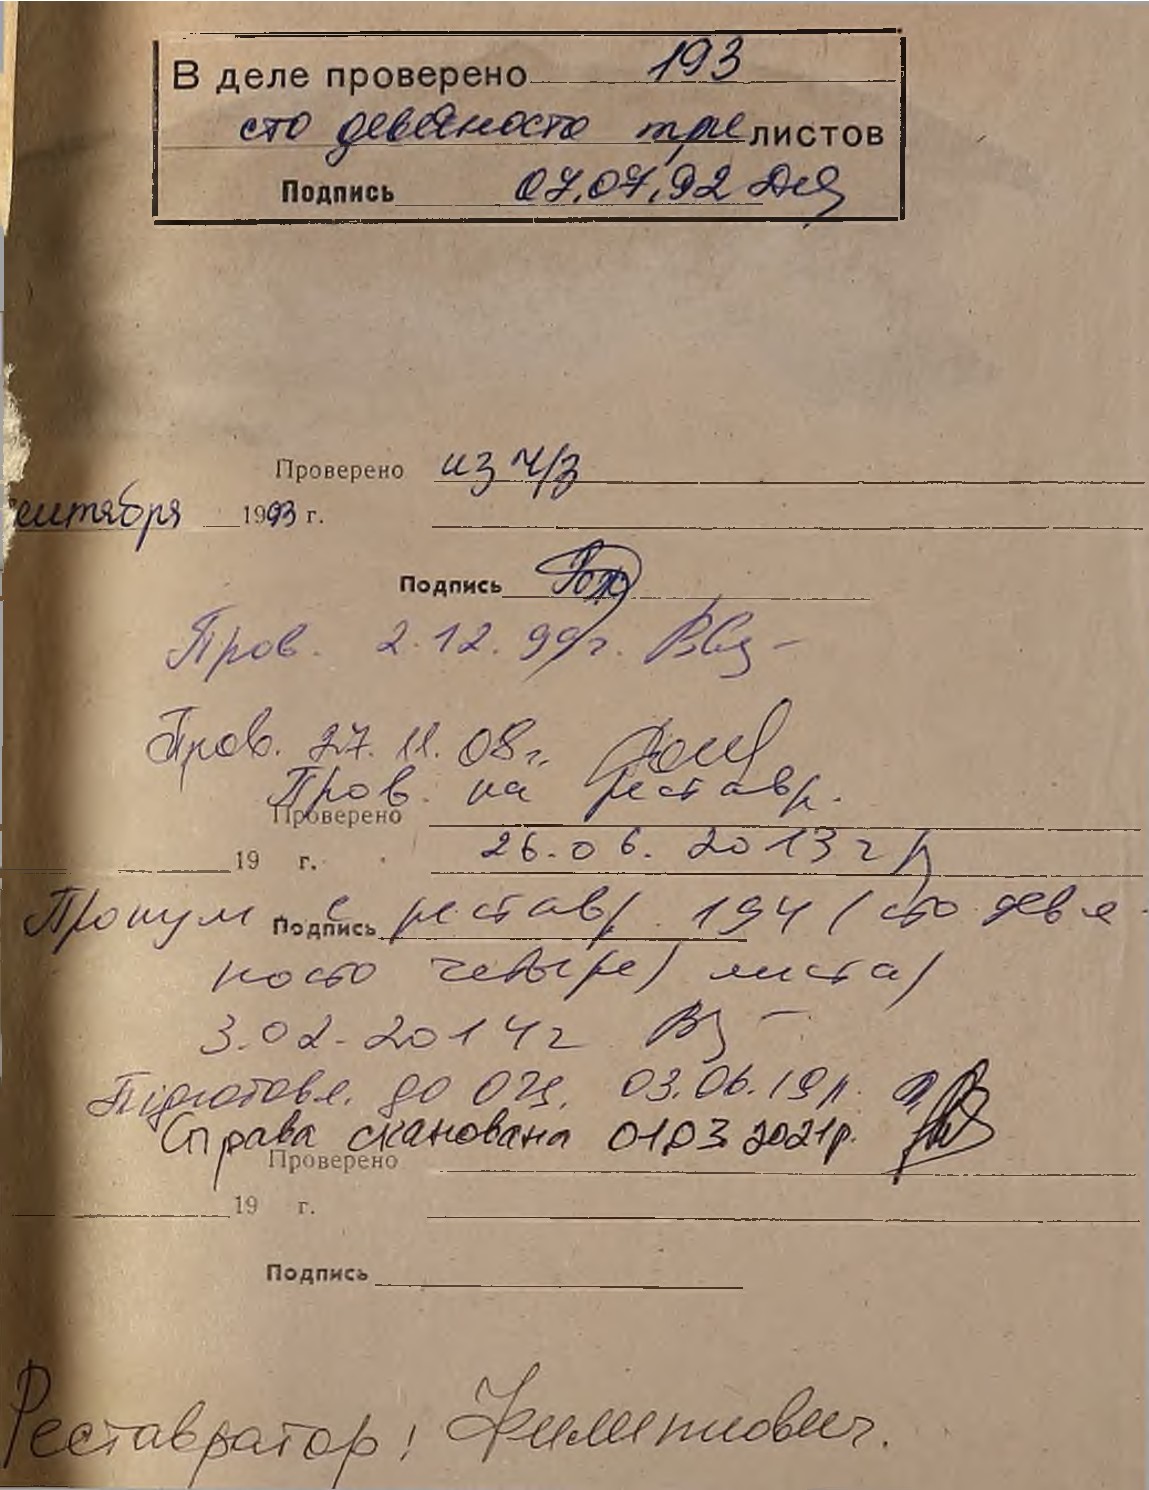 В деле проверено 193
сто девяносто три листов
Подпись 07.07.92
Проверено из ч/з
сентября 1993 г.
Подпись
Пров. 2.12.99г.
Пров. 27.11.08г.
Пров. на реставр.
Проверено
26.06.2013г
19 г.
Пронум с реставр. 194 (сто девя-
Подпись
носто четыре) листа
3.02.2014г
Підготовл. до ОЦ. 03.06.19р.
Справа сканована 01.03 2021р.
Проверено
19 г.
Подпись
Реставратор: